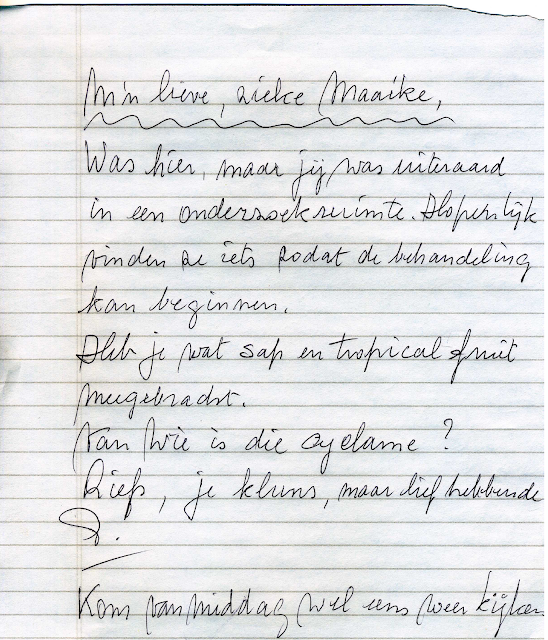 M'n lieve, zieke Maaike,
Was hier, maar jij was uiteraard
in een onderzoeksruimte. Hopenlijk
vinden ze iets zodat de behandeling
kan beginnen.
Heb je wat sap en tropical fruit
meegebracht.
Van wie is die cyclame?
Liefs, je kluns, maar liefhebbende
Kom vanmiddag wel eens weer kijken